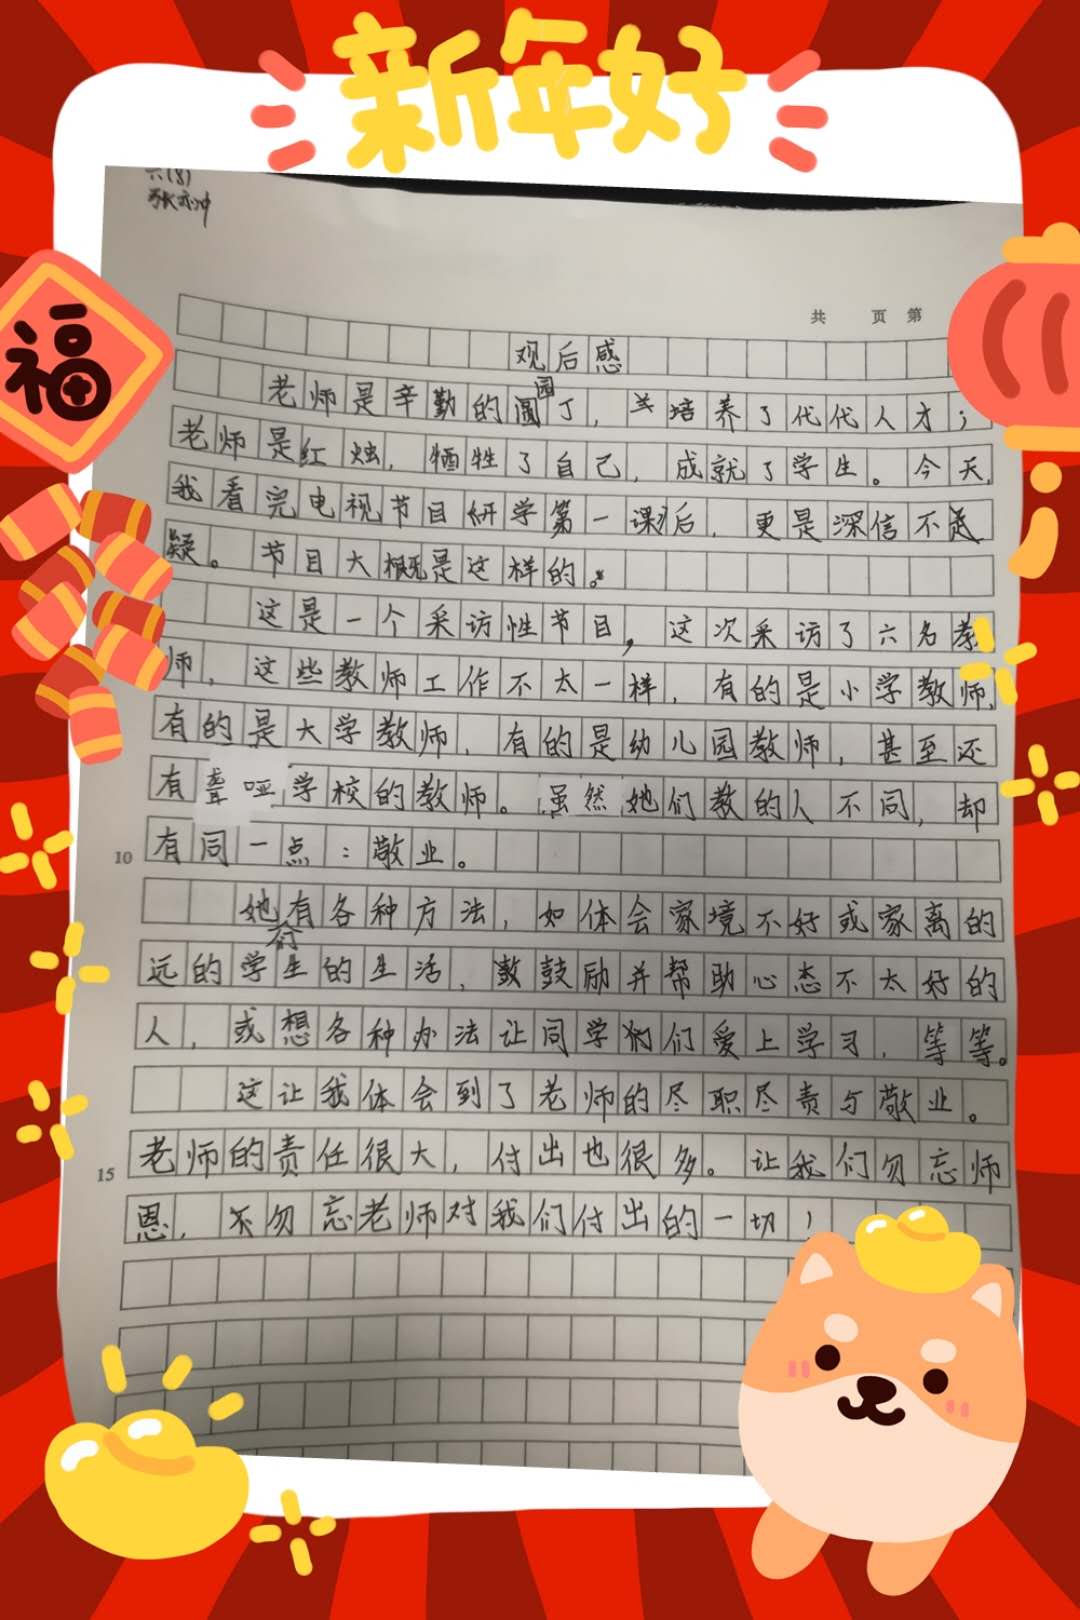 新年好
福
六(8)
共 页 第
观后感
老师是辛勤的园丁，培养了代代人才；
老师是红烛，牺牲了自己，成就了学生。今天，
我看完电视节目研学第一课后，更是深信不
疑。节目大概是这样的。
这是一个采访性节目，这次采访了六名教
师，这些教师工作不太一样，有的是小学教师，
有的是大学教师，有的是幼儿园教师，甚至还
有聋哑学校的教师。虽然她们教的人不同，却
10 有同一点：敬业。
她们有各种方法，如体会家境不好或家离的
远的学生的生活，鼓励并帮助心态不太好的
人，或想各种办法让同学们爱上学习，等等。
这让我体会到了老师的尽职尽责与敬业。
15 老师的责任很大，付出也很多。让我们勿忘师
恩，勿忘老师对我们付出的一切！